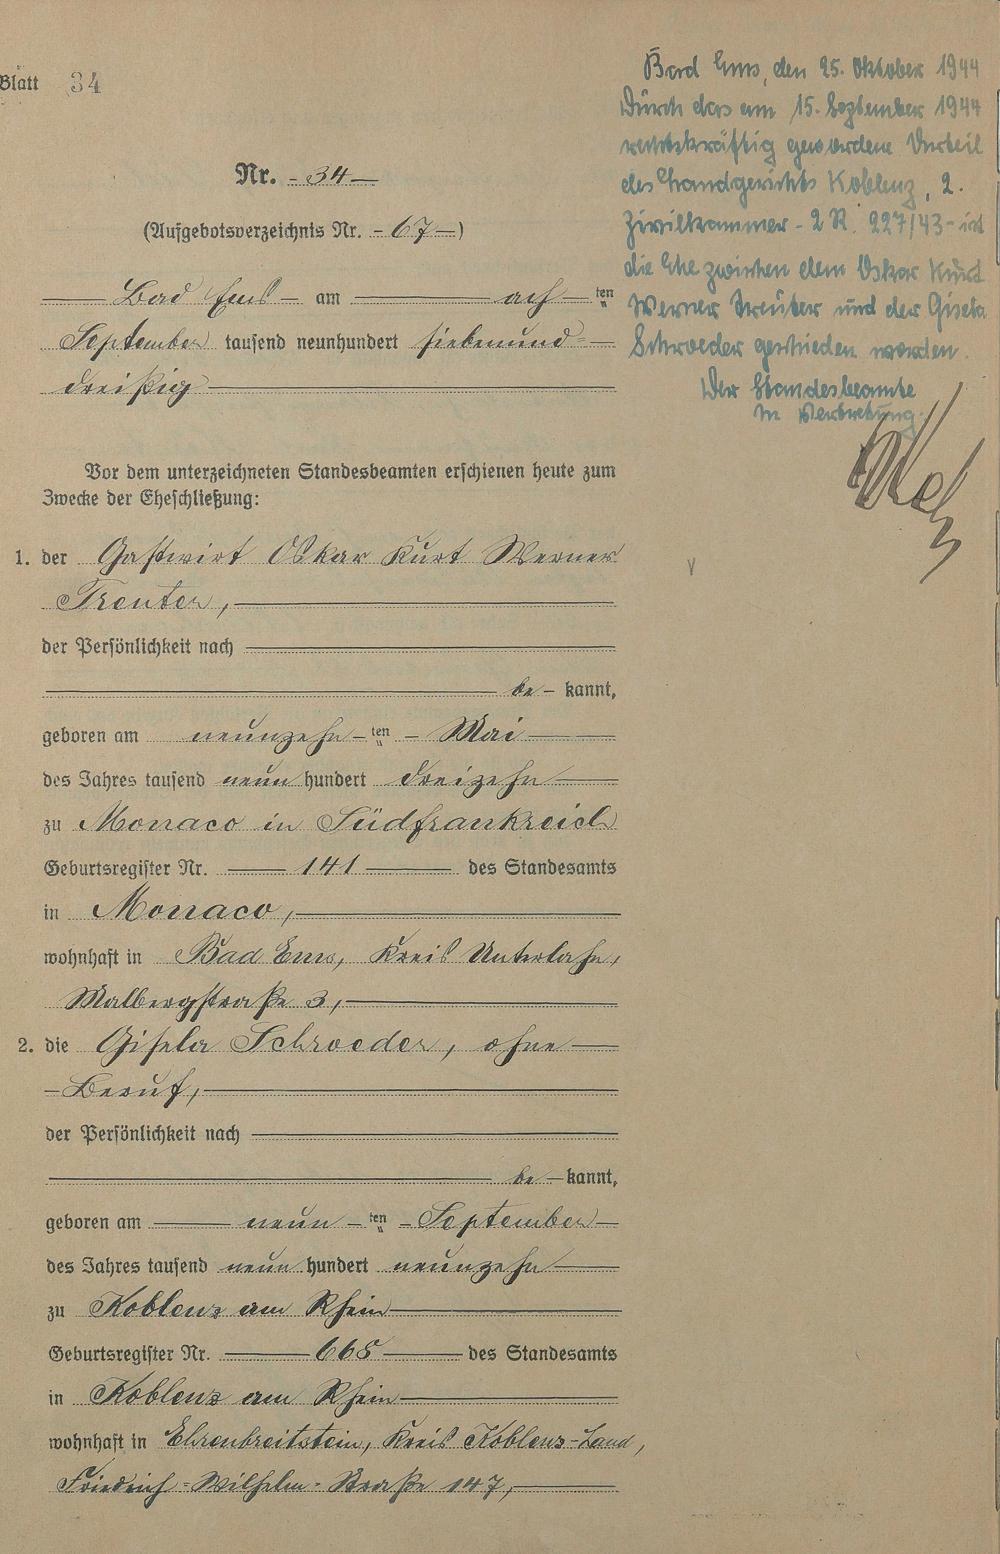 Blatt 34
Nr. - 34 —
(Aufgebotsverzeichnis Nr. - 67 —)
Bad Ems — am — ach — ten
September tausend neunhundert siebenund-
dreißig
Vor dem unterzeichneten Standesbeamten erschienen heute zum
Zwecke der Eheschließung:
1. der Gastwirt Oskar Kurt Werner
Treuter,
der Persönlichkeit nach
be- kannt,
geboren am neunzehn- ten - Mai
des Jahres tausend neun hundert dreizehn
zu Monaco in Südfrankreich
Geburtsregister Nr. 141 des Standesamts
in Monaco,
wohnhaft in Bad Ems, Kreis Unterlahn,
Malbergstraße 3,
2. die Gisela Schroeder, ohne
- Beruf,
der Persönlichkeit nach
be- kannt,
geboren am neun - ten - September
des Jahres tausend neun hundert neunzehn
zu Koblenz am Rhein
Geburtsregister Nr. 665 des Standesamts
in Koblenz am Rhein
wohnhaft in Ehrenbreitstein, Kreis Koblenz-Land,
Friedrich-Wilhelm-Straße 147,
Bad Ems, den 25. Oktober 1944
Durch das am 15. September 1944
rechtskräftig gewordene Urteil
des Landgerichts Koblenz, 2.
Zivilkammer - 2 R. 227/43 - ist
die Ehe zwischen dem Oskar Kurt
Werner Treuter und der Gisela
Schroeder geschieden worden.
Der Standesbeamte
In Vertretung: